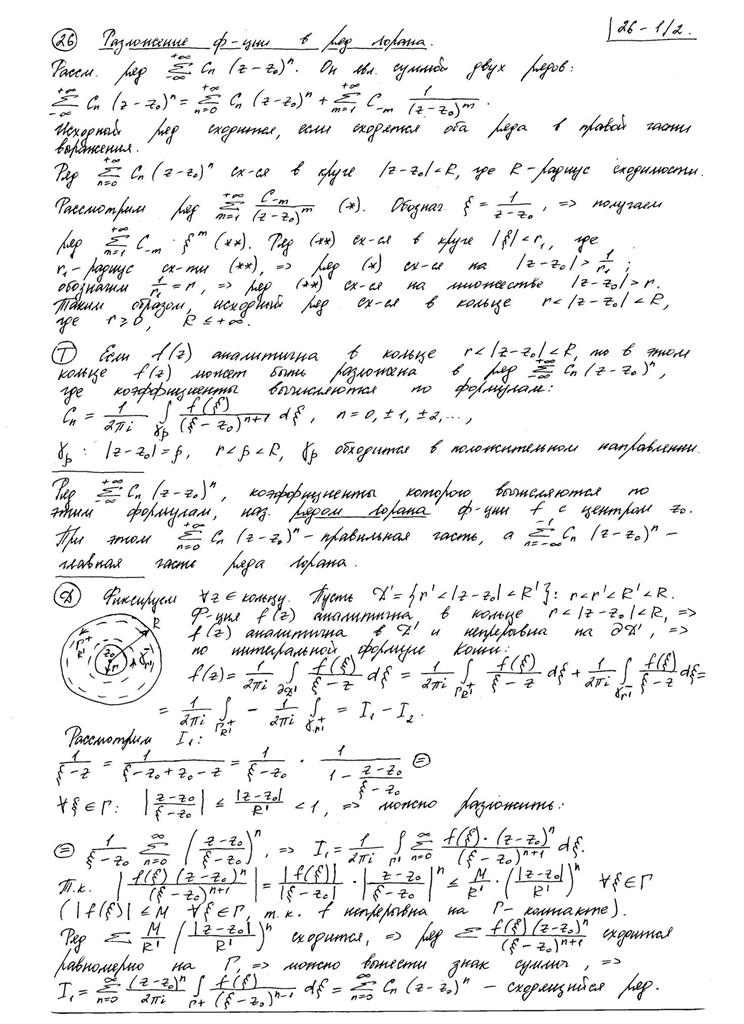 (26) Разложение ф-ции в ряд Лорана. | 26-1/2.
Рассм. ряд ∑_{-∞}^{+∞} Cₙ (z-z₀)ⁿ. Он явл. суммой двух рядов:
∑_{-∞}^{+∞} Cₙ (z-z₀)ⁿ = ∑_{n=0}^{+∞} Cₙ (z-z₀)ⁿ + ∑_{m=1}^{+∞} C₋ₘ 1/(z-z₀)^m.
Исходный ряд сходится, если сходятся оба ряда в правой части
выражения.
Ряд ∑_{n=0}^{+∞} Cₙ (z-z₀)ⁿ сх-ся в круге |z-z₀|<R, где R-радиус сходимости.
Рассмотрим ряд ∑_{m=1}^{+∞} C₋ₘ/(z-z₀)^m (*). Обознач. ξ = 1/(z-z₀), => получаем
ряд ∑_{m=1}^{+∞} C₋ₘ · ξ^m (**). Ряд (**) сх-ся в круге |ξ|<r₁, где
r₁-радиус сх-ти (**), => ряд (*) сх-ся на |z-z₀| > 1/r₁ ;
обозначим 1/r₁ = r, => ряд (**) сх-ся на множестве |z-z₀|>r.
Таким образом, исходный ряд сх-ся в кольце r<|z-z₀|<R,
где r≥0, R≤+∞.
(Т) Если f(z) аналитична в кольце r<|z-z₀|<R, то в этом
кольце f(z) может быть разложена в ряд ∑_{-∞}^{+∞} Cₙ (z-z₀)ⁿ,
где коэффициенты вычисляются по формулам:
Cₙ = 1/(2πi) ∫_{γρ} f(ξ)/(ξ-z₀)^{n+1} dξ, n=0, ±1, ±2,...,
γρ: |z-z₀|=ρ, r<ρ<R, γρ обходится в положительном направлении.
Ряд ∑_{-∞}^{+∞} Cₙ (z-z₀)ⁿ, коэффициенты которого вычисляются по
этим формулам, наз. рядом Лорана ф-ции f с центром z₀.
При этом ∑_{n=0}^{+∞} Cₙ (z-z₀)ⁿ - правильная часть, а ∑_{n=-∞}^{-1} Cₙ (z-z₀)ⁿ -
главная часть ряда Лорана.
(Д) Фиксируем ∀z∈кольцу. Пусть D'={r'<|z-z₀|<R'}: r<r'<R'<R.
Ф-ция f(z) аналитична в кольце r<|z-z₀|<R, =>
f(z) аналитична в D' и непрерывна на ∂D', =>
по интегральной формуле Коши:
f(z) = 1/(2πi) ∫_{∂D'} f(ξ)/(ξ-z) dξ = 1/(2πi) ∫_{Γ_{R'}^+} f(ξ)/(ξ-z) dξ + 1/(2πi) ∫_{γ_{r'}^-} f(ξ)/(ξ-z) dξ =
= 1/(2πi) ∫_{Γ_{R'}^+} - 1/(2πi) ∫_{γ_{r'}^+} = I₁ - I₂.
Рассмотрим I₁:
1/(ξ-z) = 1/(ξ-z₀+z₀-z) = 1/(ξ-z₀) · 1/(1-(z-z₀)/(ξ-z₀)) ⊜
∀ξ∈Γ: |(z-z₀)/(ξ-z₀)| ≤ |z-z₀|/R' < 1, => можно разложить:
⊜ 1/(ξ-z₀) ∑_{n=0}^{∞} ((z-z₀)/(ξ-z₀))ⁿ, => I₁ = 1/(2πi) ∫_{Γ'} ∑_{n=0}^{∞} f(ξ)·(z-z₀)ⁿ/(ξ-z₀)^{n+1} dξ.
Т.к. |f(ξ)(z-z₀)ⁿ/(ξ-z₀)^{n+1}| = |f(ξ)|/|ξ-z₀| · |(z-z₀)/(ξ-z₀)|ⁿ ≤ M/R' · (|z-z₀|/R')ⁿ ∀ξ∈Γ
(|f(ξ)| ≤ M ∀ξ∈Γ, т.к. f непрерывна на Γ- контакте).
Ряд ∑ M/R' (|z-z₀|/R')ⁿ сходится, => ряд ∑ f(ξ)(z-z₀)ⁿ/(ξ-z₀)^{n+1} сходится
равномерно на Γ, => можно вынести знак суммы, =>
I₁ = ∑_{n=0}^{∞} (z-z₀)ⁿ/(2πi) ∫_{Γ+} f(ξ)/(ξ-z₀)^{n-1} dξ = ∑_{n=0}^{∞} Cₙ (z-z₀)ⁿ - сходящийся ряд.